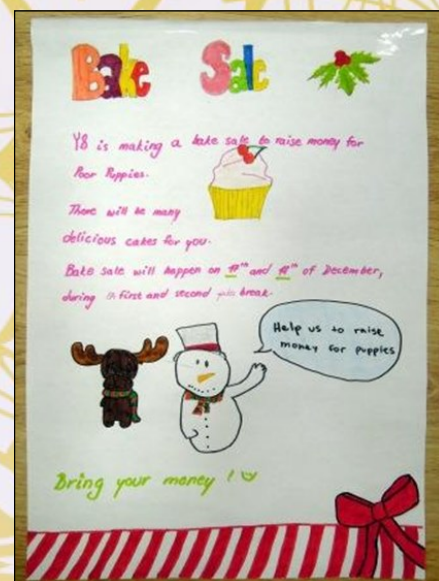 Bake Sale
Y8 is making a bake sale to raise money for
Poor Puppies.
There will be many
delicious cakes for you.
Bake Sale will happen on and of December,
during first and second break.
Help us to raise
money for puppies
Bring your money !